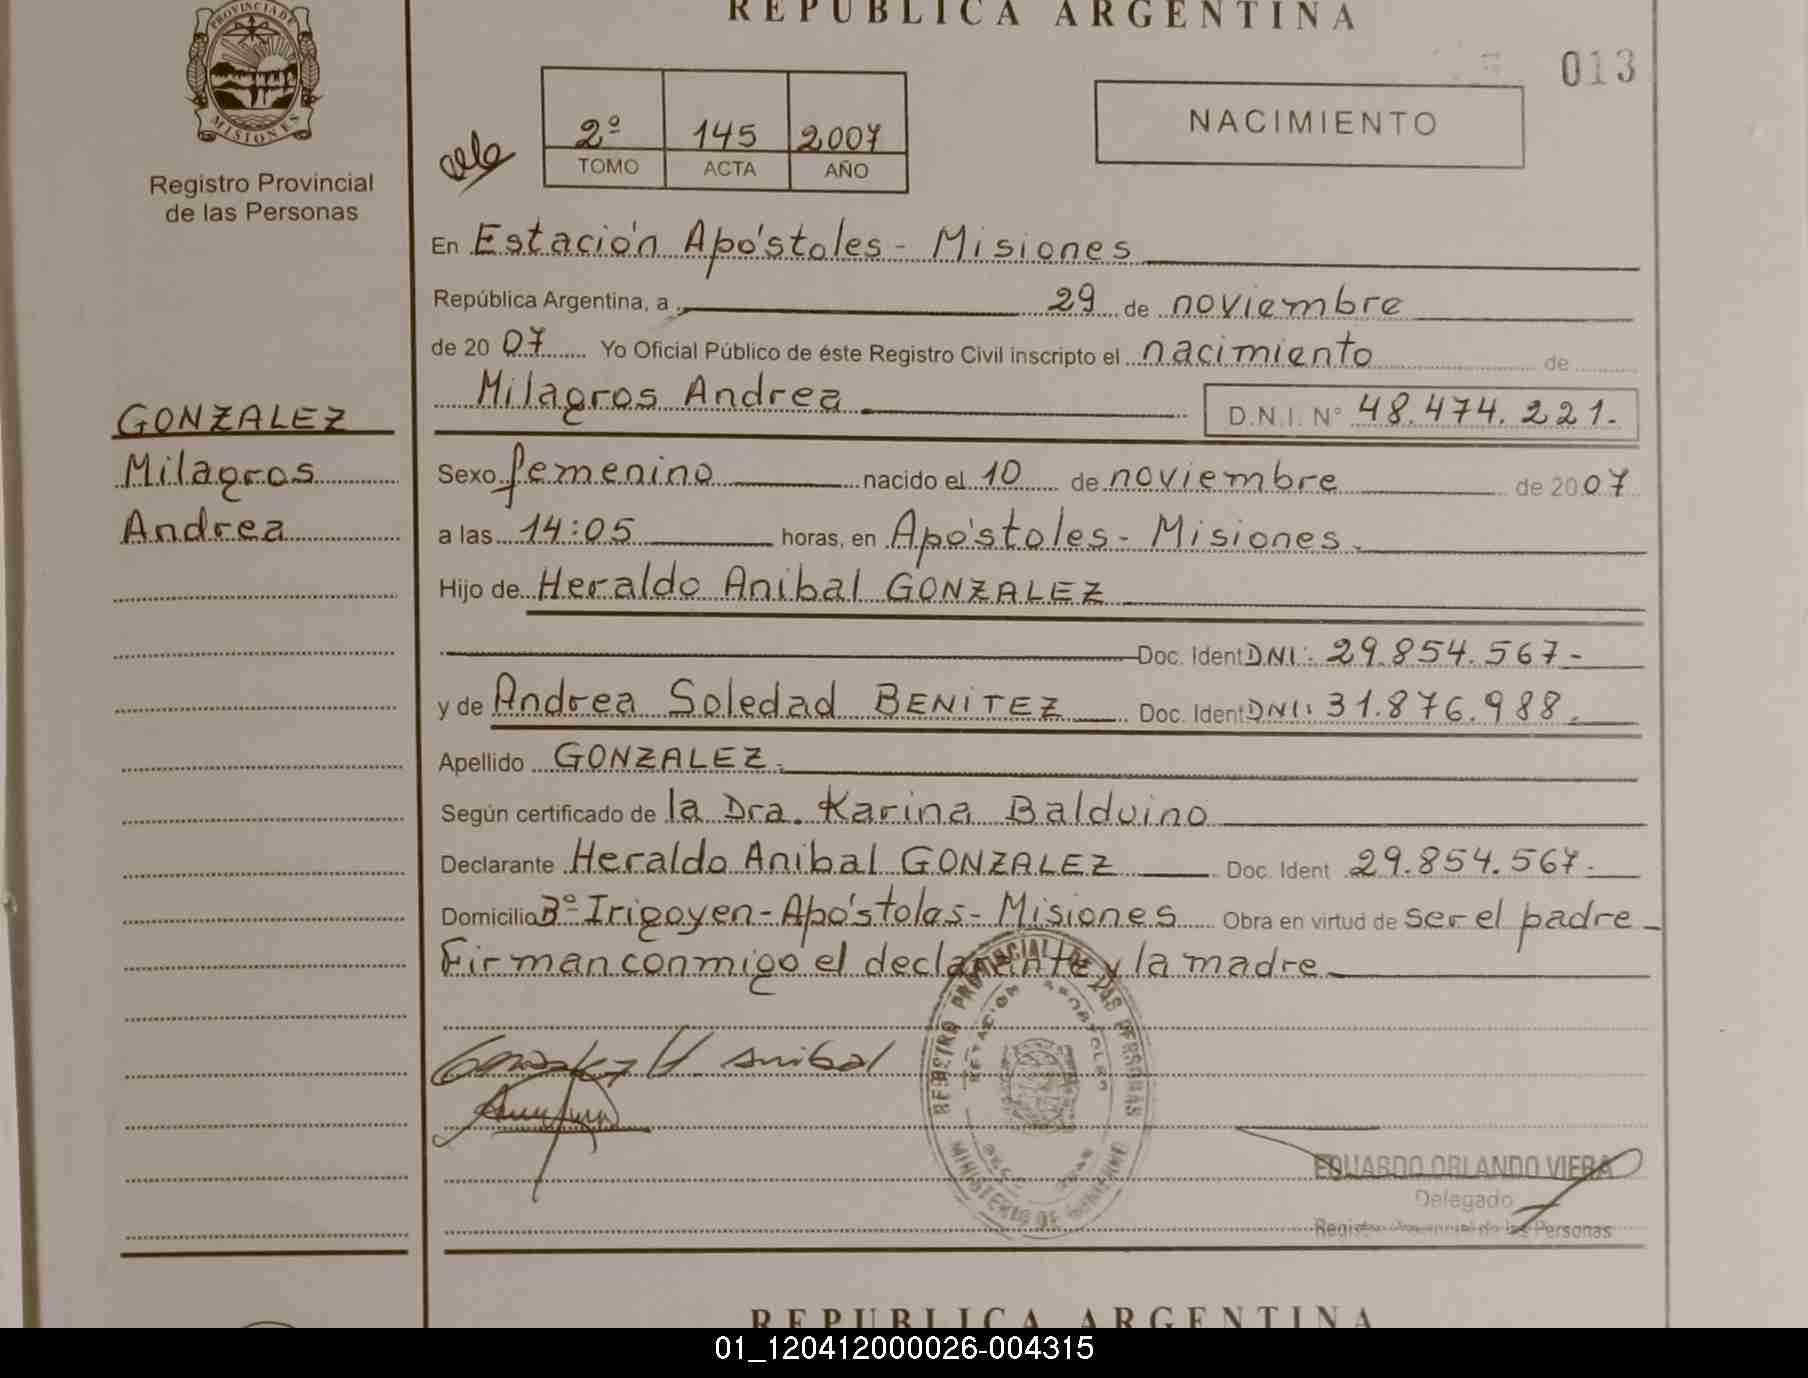 REPUBLICA ARGENTINA
PROVINCIA DE
MISIONES
013
2º 145 2007
TOMO ACTA AÑO
NACIMIENTO
Registro Provincial
de las Personas
En Estación Apóstoles - Misiones
República Argentina, a 29 de noviembre
de 2007 Yo Oficial Público de éste Registro Civil inscripto el nacimiento de
Milagros Andrea D.N.I. Nº 48.474.221.
GONZALEZ
Milagros
Andrea
Sexo femenino nacido el 10 de noviembre de 2007
a las 14:05 horas, en Apóstoles - Misiones.
Hijo de Heraldo Anibal GONZALEZ
Doc. Ident DNI: 29.854.567-
y de Andrea Soledad BENITEZ Doc. Ident DNI: 31.876.988.
Apellido GONZALEZ.
Según certificado de la Dra. Karina Balduino
Declarante Heraldo Anibal GONZALEZ Doc. Ident 29.854.567.
Domicilio Bº Irigoyen - Apóstoles - Misiones Obra en virtud de ser el padre
Firman conmigo el declarante y la madre
REGISTRO PROVINCIAL DE LAS PERSONAS
ESTACION APOSTOLES
MINISTERIO DE GOBIERNO
Gonzalez H. Anibal
EDUARDO ORLANDO VIERA
Delegado
Registro Provincial de las Personas
REPUBLICA ARGENTINA
01_120412000026-004315